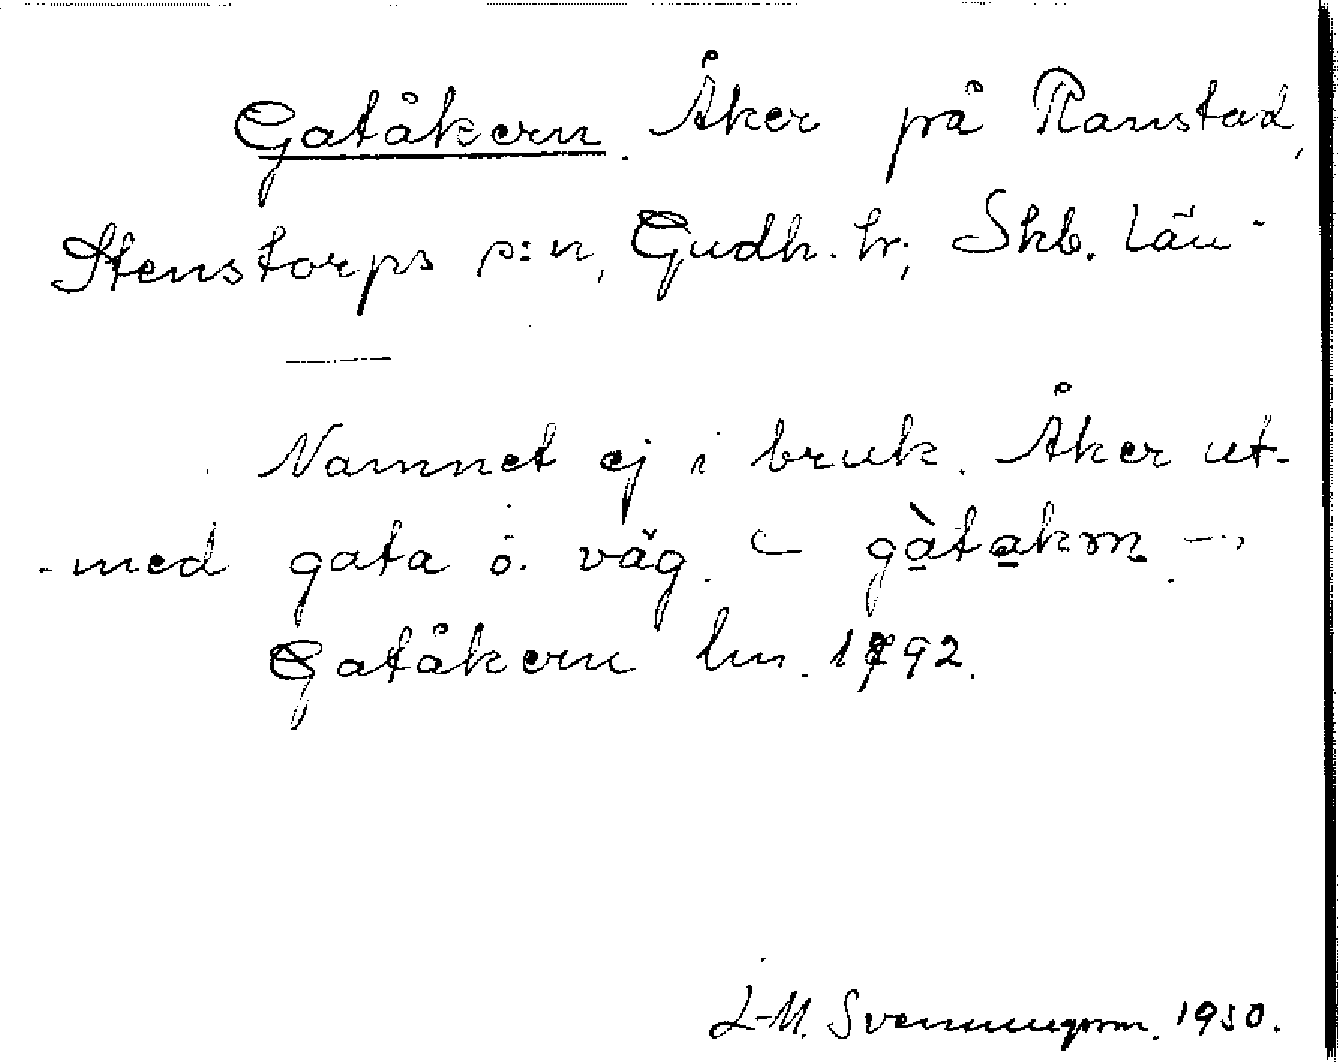 Gatåkern. Åker på Ranstad,
Stenstorps s:n, Gudh. hr, Skb. län
Namnet ej i bruk. Åker ut-
med gata o. väg.
Gatåkern lm. 1792.
L-M. Svenningsson. 1950.